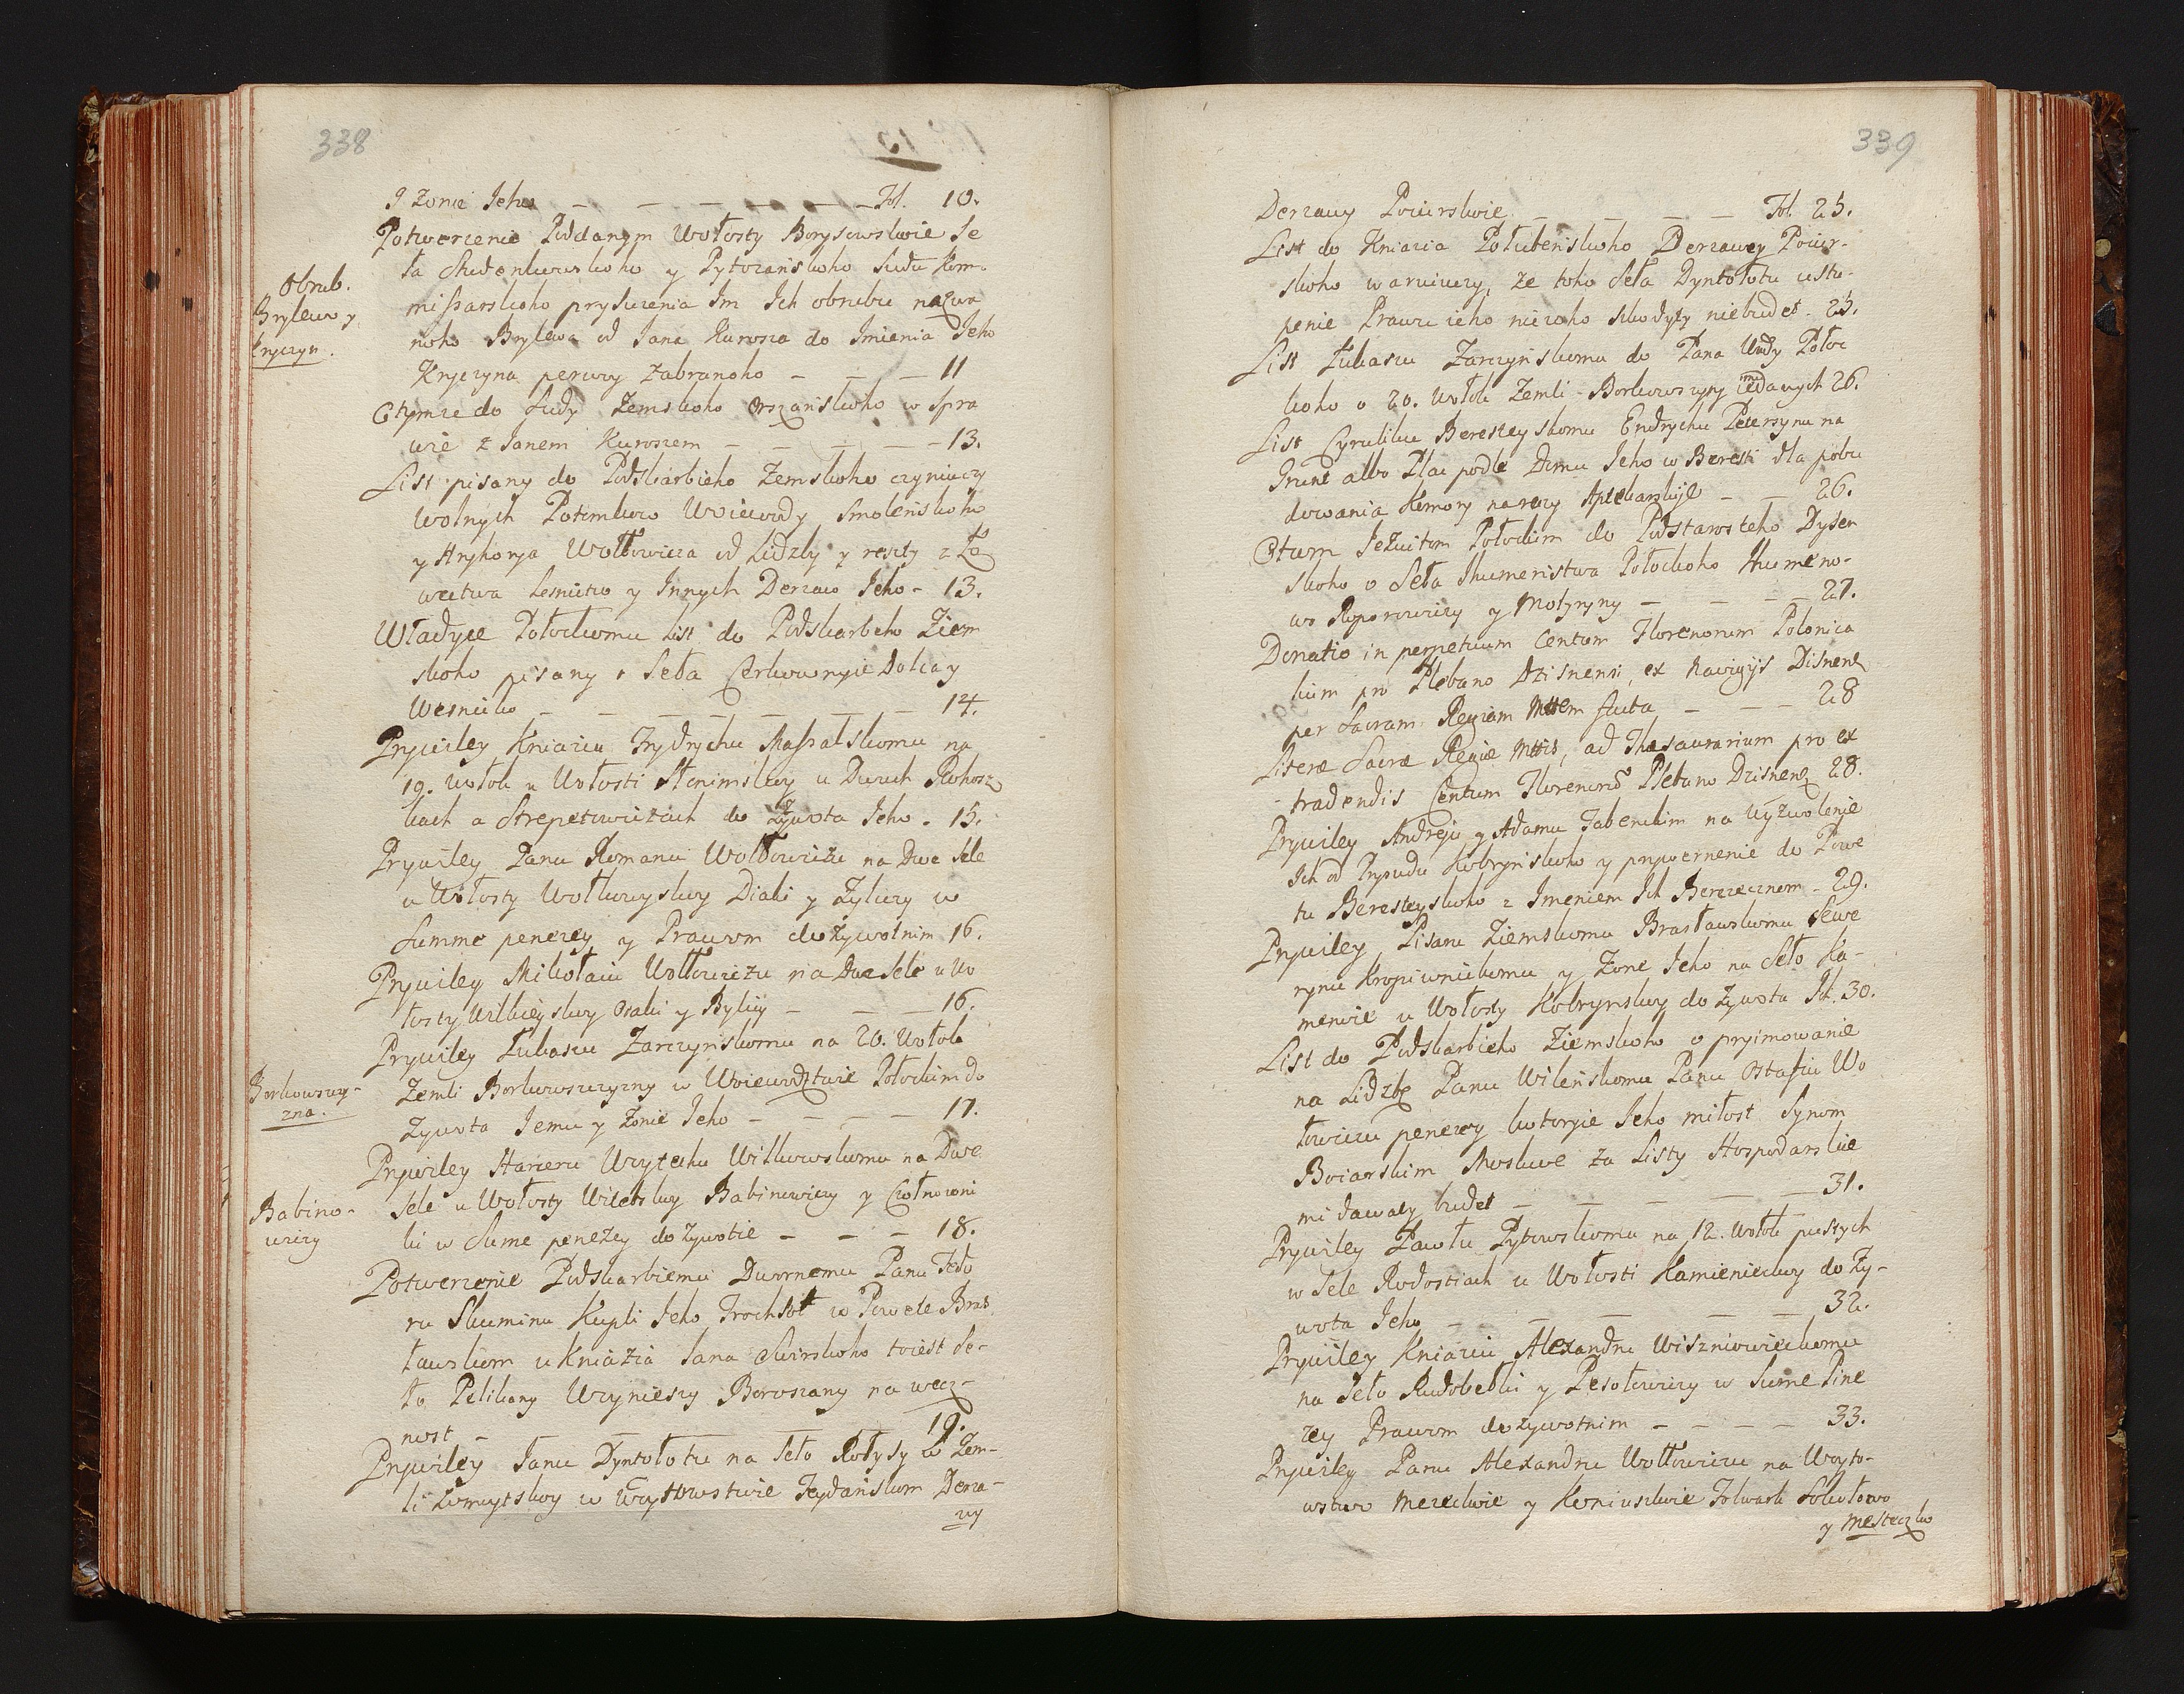 338
y Żonie Jeho — — — — — — Fol. 10.
Potwerzenie Poddanym Wołosty Borysowskoie Se
ła Studenkowskoho y Pytczańskoho Sudu Kom-
Obrub.
missarskoho prysużenia Im Ich obrubu nazwa
Brylewo y
noho Brylewa od Jana Kurosza do Imienia Jeho
Kryczyn.
Kryczyna perwey zabranoho — — — 11
Otymże do Sudy Zemskoho Orszańskoho w Spra
wie z Janem Kuroszem — — — — — 13.
List pisany do Podskarbieho Zemskoho czyniuczy
Wolnych Potomkow Woiewody Smoleńskoho
y Hryhorya Wołłowicza od Lidzby y reszty z Ło
wectwa Lesnictwo y Innych Derżaw Jeho - 13.
Władyce Połockomu List do Podskarbeho Ziem
skoho pisany o Seła Cerkownyie Dolca y
Wesnicko — — — — — — — 14.
Prywiley Kniaziu Frydrychu Massalskomu na
19. Wołok u Wołosti Słonimskoy u Dwuch Rohosz
kach a Strepetowiżach do Żywota Jeho - 15.
Prywiley Panu Romanu Wołłowiżu na Dwe Sele
u Wołosty Wołkowyskoy Diaki y Żylczy w
Summe penezey y Prawom dożywotnim 16.
Prywiley Mikołaiu Wołłowiżu na Dwe Sele u Wo
łosty Wilkieyskoy Osaki y Byliiy — — — 16.
Prywiley Łukaszu Zarczynskomu na 20. Wołok
Borkowszczy-
zna.
Zemli Borkowszczyzny w Woiewodztwie Połockim do
Żywota Jemu y Żonie Jeho — — — — 17.
Prywiley Harceru Woytechu Witkowskomu na Dwe
Babino-
wiczy
Sele u Wołosty Witebskoy Babinowiczy y
ki w Sume peneżey do żywotie — — — 18.
Potwerzenie Podskarbiemu Dwornemu Panu Fedo
ru Skuminu Kupli Jeho Troch Soł w Powete Bras
ławskom u Kniazia Jana Swirskoho toiest Se-
ło Pelikany Woynieszy Boroszany na wecz-
nost — — — — — — 19.
Prywiley Janu Dyntołotu na Seło Rołysy w Zem-
li Żomoytskoy w Woytowstwie Heydańskom Derża-
wy
339
Derżawy Powirskoie — — — — Fol. 25.
List do Kniazia Połubeńskoho Derżawcy Powir-
skoho waruiuczy, że toho Seła Dyntołotu ustu-
penie Prawu ieho niczoho szkodyty niebudet. 25.
List Łukaszu Zarczyńskomu do Pana Wdy Połoc
koho o 20. Wołok Zemli Borkowszyzny imu danych 26.
List Cyruliku Beresteyskomu Endrychu Petersynu na
Grunt albo Plac podle Domu Jeho w Beresti dla pobu
dowania Komory na reczy Aptekarskije — — 26.
Otum Jezuitom Połockim do Podstarosteho Dysen
skoho o Seła Ihumeństwa Połockoho Humeno-
wo Roporowiczy y Motyryny — — — — 27.
Donatio in perpetuum Centum Florenorum Polonica
lium pro Plebano Dzisnensi, ex navigijs Disnens
per Sacram Regiam Mttem facta — — — 28
Literæ Sacræ Regiæ Mttis, ad Thesaurarium pro ex
tradendis Centum Florenorũ Plebano Dzisnens 28.
Prywiley Andreju y Adamu Fabenckim na wyzwolenie
Ich od Prysudu Kobryńskoho y prywernenie do Powe
tu Beresteyskoho z Imeniem Ich Berezecznom - 29.
Prywiley Pisaru Ziemskomu Brasławskomu Sewe
rynu Kropiwnickomu y Żone Jeho na Seło Ka-
menice u Wołosty Kobrynskoy do Żywota Ich. 30.
List do Podskarbieho Ziemskoho o pryimowanie
na Lidzbę Panu Wileńskomu Panu Ostafiu Wo
łowiczu penezey kotoryie Jeho miłost Synom
Boiarskim Moskwe za Listy Hospodarskie
mi dawaty budet — — — — — 31.
Prywiley Pawłu Pytowskomu na 12. Wołok pustych
w Sele Rodostiach u Wołosti Kamienieckoy do Ży-
wota Jeho — — — — — — 32.
Prywiley Kniaziu Alexandru Wiszniowieckomu
na Seło Rudobełki y Pesołowiczy w Sume Pine
zey Prawom dożywotnim — — — — 33.
Prywiley Panu Alexandru Wołłowiczu na Woyto-
wstwo Mereckoie y Koniuskoie Folwark Sokołowo
y Mesteczko